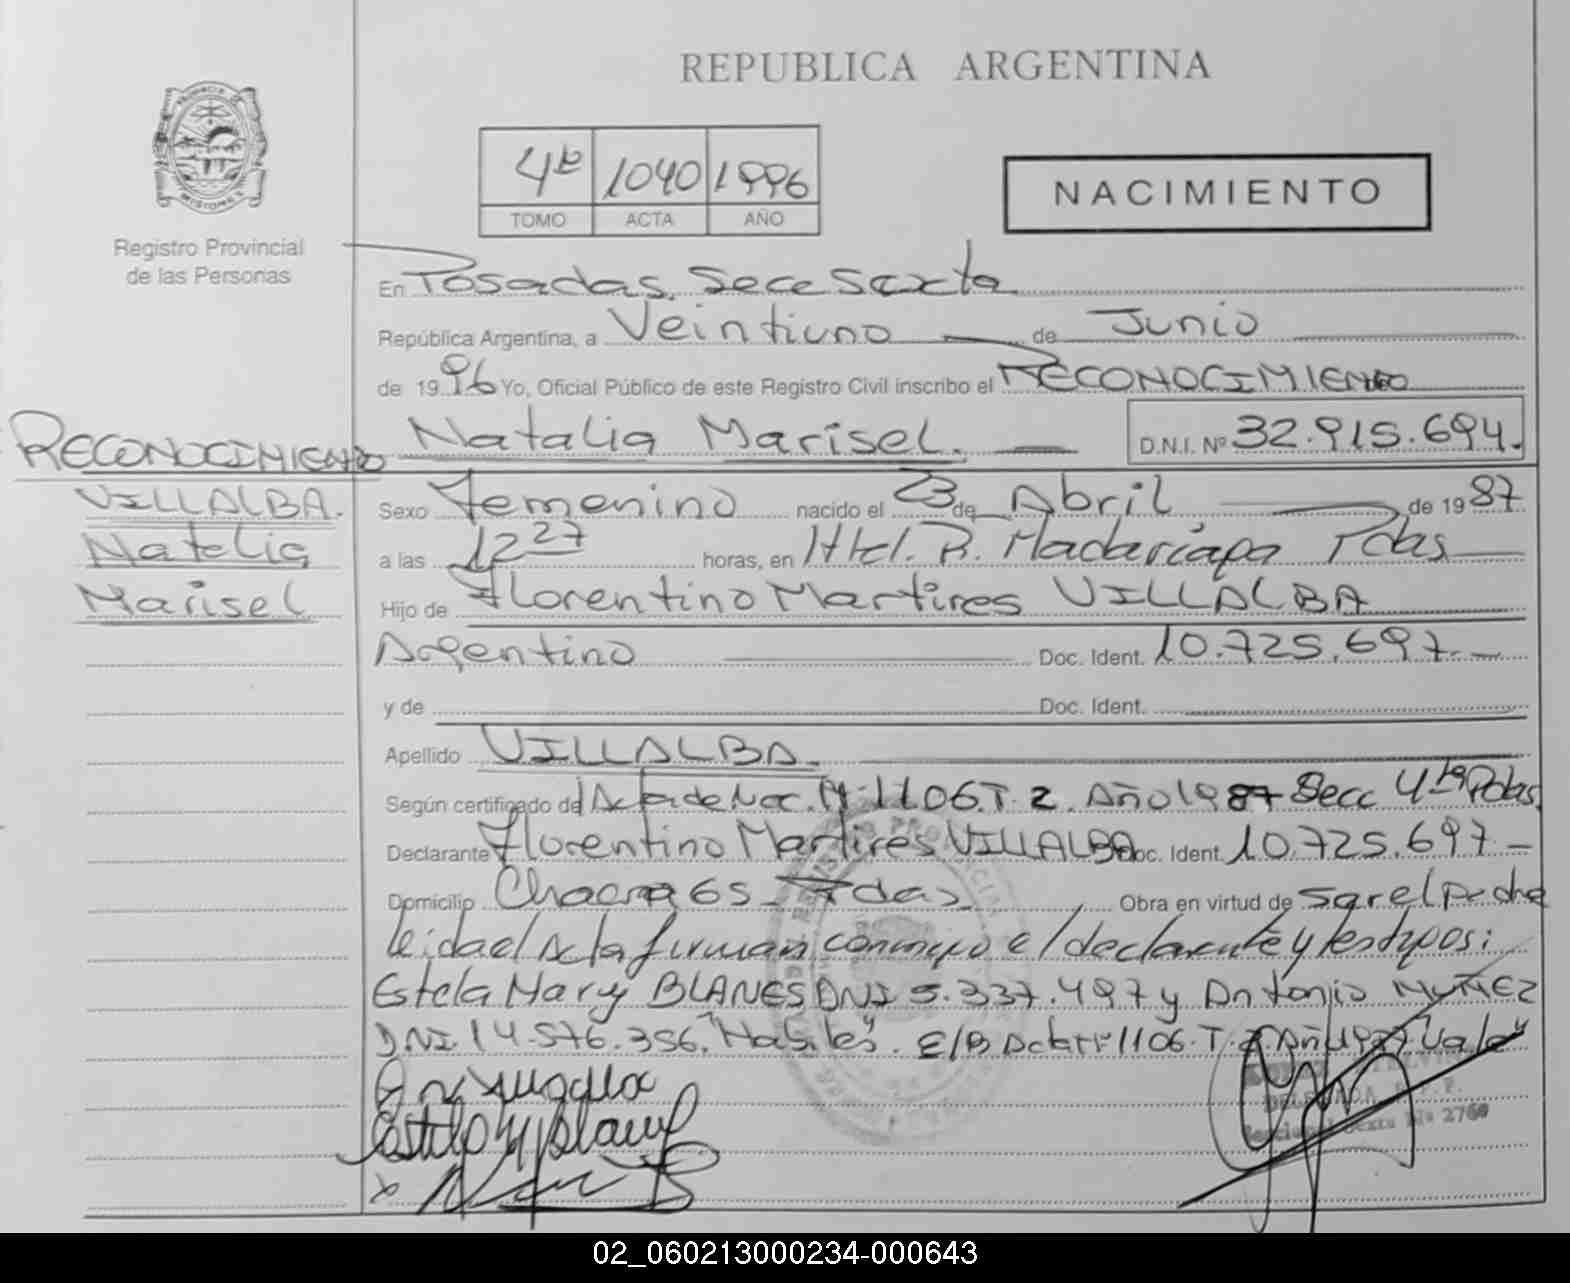 REPUBLICA ARGENTINA
4ta 1040 1996
TOMO ACTA AÑO
NACIMIENTO
Registro Provincial
de las Personas
En Posadas, Secc Sexta
República Argentina, a Veintiuno de Junio
de 1996 Yo, Oficial Público de este Registro Civil inscribo el RECONOCIMIENTO
Natalia Marisel. D.N.I. Nº 32.915.694.
RECONOCIMIENTO
VILLALBA.
Natalia
Marisel
Sexo Femenino nacido el 23 de Abril, de 1987
a las 12 27 horas, en Htel. R. Madariaga Pdas
Hijo de Florentino Martires VILLALBA
Argentino Doc. Ident. 10.725.697.-
y de Doc. Ident.
Apellido VILLALBA.
Según certificado de Acta de Nac. Nº 1106.T. 2. Año 1987 Secc 4ta Pdas.
Declarante Florentino Martires VILLALBA Doc. Ident. 10.725.697.-
Domicilio Chacra 65 - Pdas Obra en virtud de ser el padre
leida el Acta firman conmigo el declarante y testigos:
Estela Mary BLANES DNI 5.337.497 y Antonio MUÑEZ
DNI. 14.576.356. "Habiles". E/B Acta Nº 1106. T. 2 Año 1987 Vale
DELEGADA
Seccional Sexta Nº 2760
02_060213000234-000643